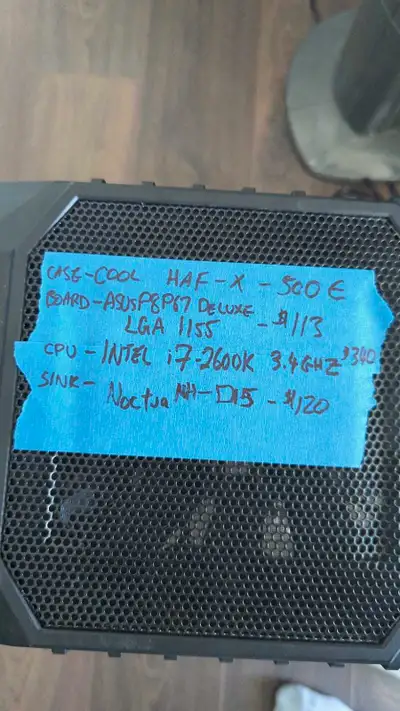 CASE-COOL HAF-X - 500 €
BOARD-ASUS P8P67 DELUXE
LGA 1155 - $113
CPU - INTEL i7-2600K 3.4GHZ $340
SINK- Noctua NH-D15 - $120